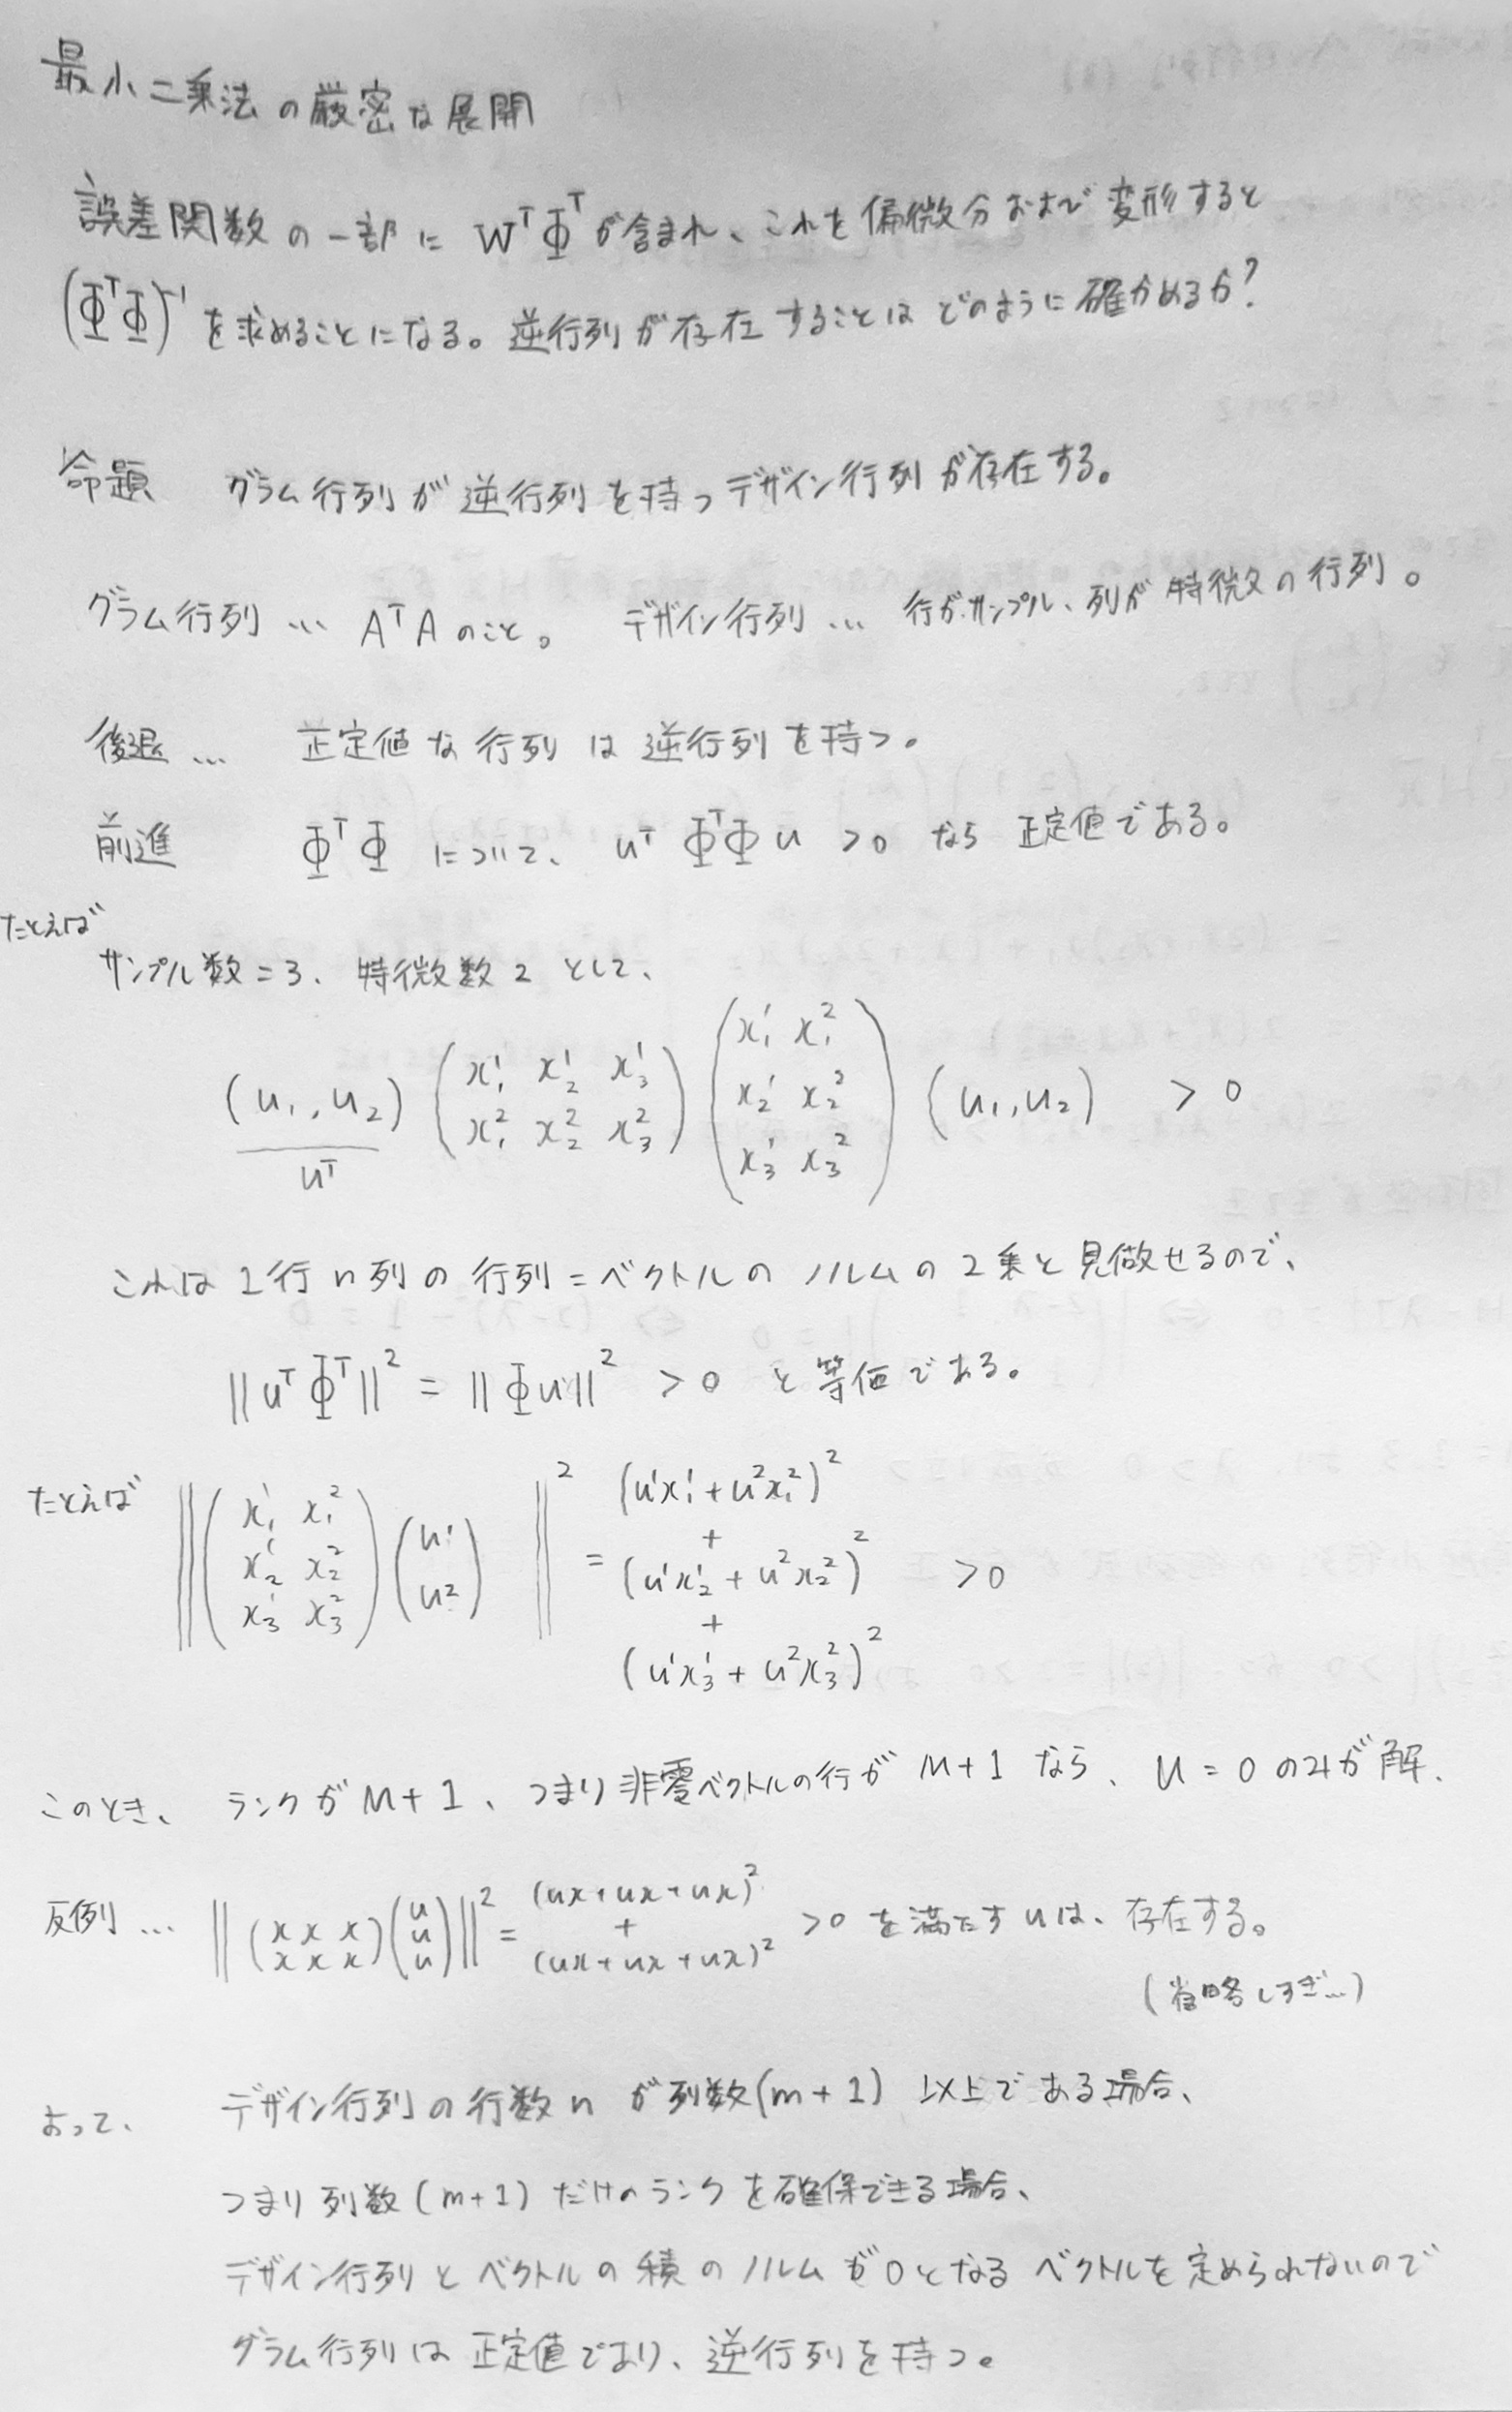 最小二乗法の厳密な展開
誤差関数の一部に WᵀΦᵀが含まれ、これを偏微分および変形すると
(ΦᵀΦ)⁻¹ を求めることになる。逆行列が存在することはどのように確かめるか?
命題 グラム行列が逆行列を持つデザイン行列が存在する。
グラム行列 … AᵀAのこと。 デザイン行列 … 行がサンプル、列が特徴の行列。
後退 … 正定値な行列は逆行列を持つ。
前進 ΦᵀΦ について、 uᵀ ΦᵀΦ u > 0 なら 正定値である。
たとえば
サンプル数=3、特徴数2 として、
(u₁, u₂) (x₁¹ x₂¹ x₃¹ / x₁² x₂² x₃²) (x₁¹ x₁² / x₂¹ x₂² / x₃¹ x₃²) (u₁, u₂) > 0
uᵀ
これは1行n列の行列=ベクトルのノルムの2乗と見做せるので、
||uᵀΦᵀ||² = ||Φu||² > 0 と等価である。
たとえば ||(x₁¹ x₁² / x₂¹ x₂² / x₃¹ x₃²) (u¹ / u²)||² = (u¹x₁¹ + u²x₁²)²
+
(u¹x₂¹ + u²x₂²)² > 0
+
(u¹x₃¹ + u²x₃²)²
このとき、ランクがM+1、つまり非零ベクトルの行がM+1なら、u = 0のみが解.
反例 … ||(x x x / x x x) (u / u / u)||² = (ux+ux+ux)²
+
(ux+ux+ux)² >0 を満たすuは、存在する。
(省略しすぎ…)
よって、 デザイン行列の行数nが列数(m+1)以上である場合、
つまり列数(m+1)だけのランクを確保できる場合、
デザイン行列とベクトルの積のノルムが0となるベクトルを定められないので
グラム行列は正定値であり、逆行列を持つ。